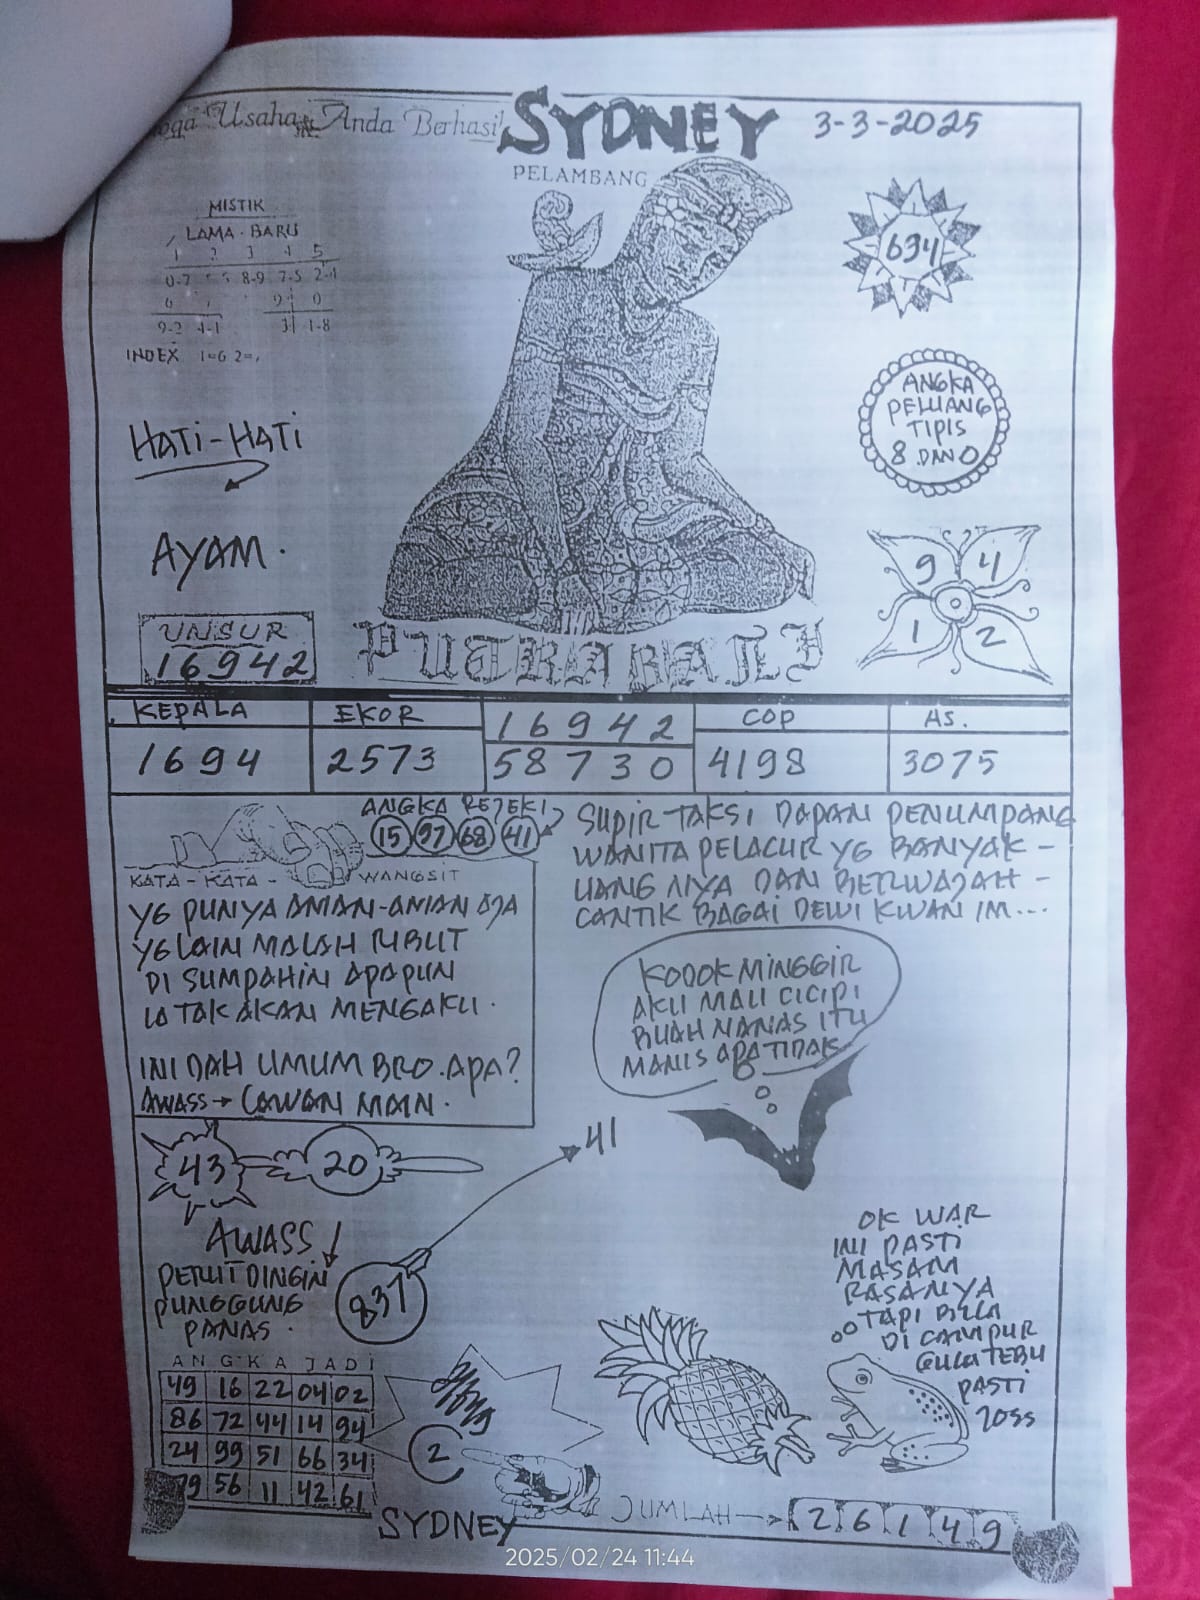 Usaha Anda Berhasil
SYDNEY
3-3-2025
PELAMBANG
MISTIK
LAMA - BARU
0-7 8-9 7-5 2-4
9-2 4-1 3 1-8
INDEX 1=6 2=
634
HATI-HATI
AYAM.
ANGKA
PELUANG
TIPIS
8 DAN 0
9 4
1 2
UNSUR
16942
PUTRA BALI
KEPALA EKOR 16942 COP AS.
1694 2573 58730 4198 3075
ANGKA REJEKI
15 97 68 41
KATA - KATA - WANGSIT
YG PUNYA AMAN-AMAN AJA
YG LAIN MALAH RIBUT
DI SUMPAHIN APAPUN
IA TAK AKAN MENGAKU.
INI DAH UMUM BRO. APA?
AWASS → LAWAN MAIN.
SUPIR TAKSI DAPAN PENUMPANG
WANITA PELACUR YG BANYAK -
UANG NYA DAN BERWAJAH -
CANTIK BAGAI DEWI KWAN IM...
KODOK MINGGIR
AKU MAU CICIPI
BUAH NANAS ITU
MANIS APA TIDAK
43
20
41
AWASS
PERUT DINGIN
PUNGGUNG
PANAS.
837
OK WAR
INI PASTI
MASAM
RASANYA
TAPI BILA
DI CAMPUR
GULA TEBU
PASTI
JOSS
ANGKA JADI
49 16 22 04 02
86 72 44 14 94
24 99 51 66 34
79 56 11 42 61
2
SYDNEY
JUMLAH → 2 6 1 4 9
2025/02/24 11:44